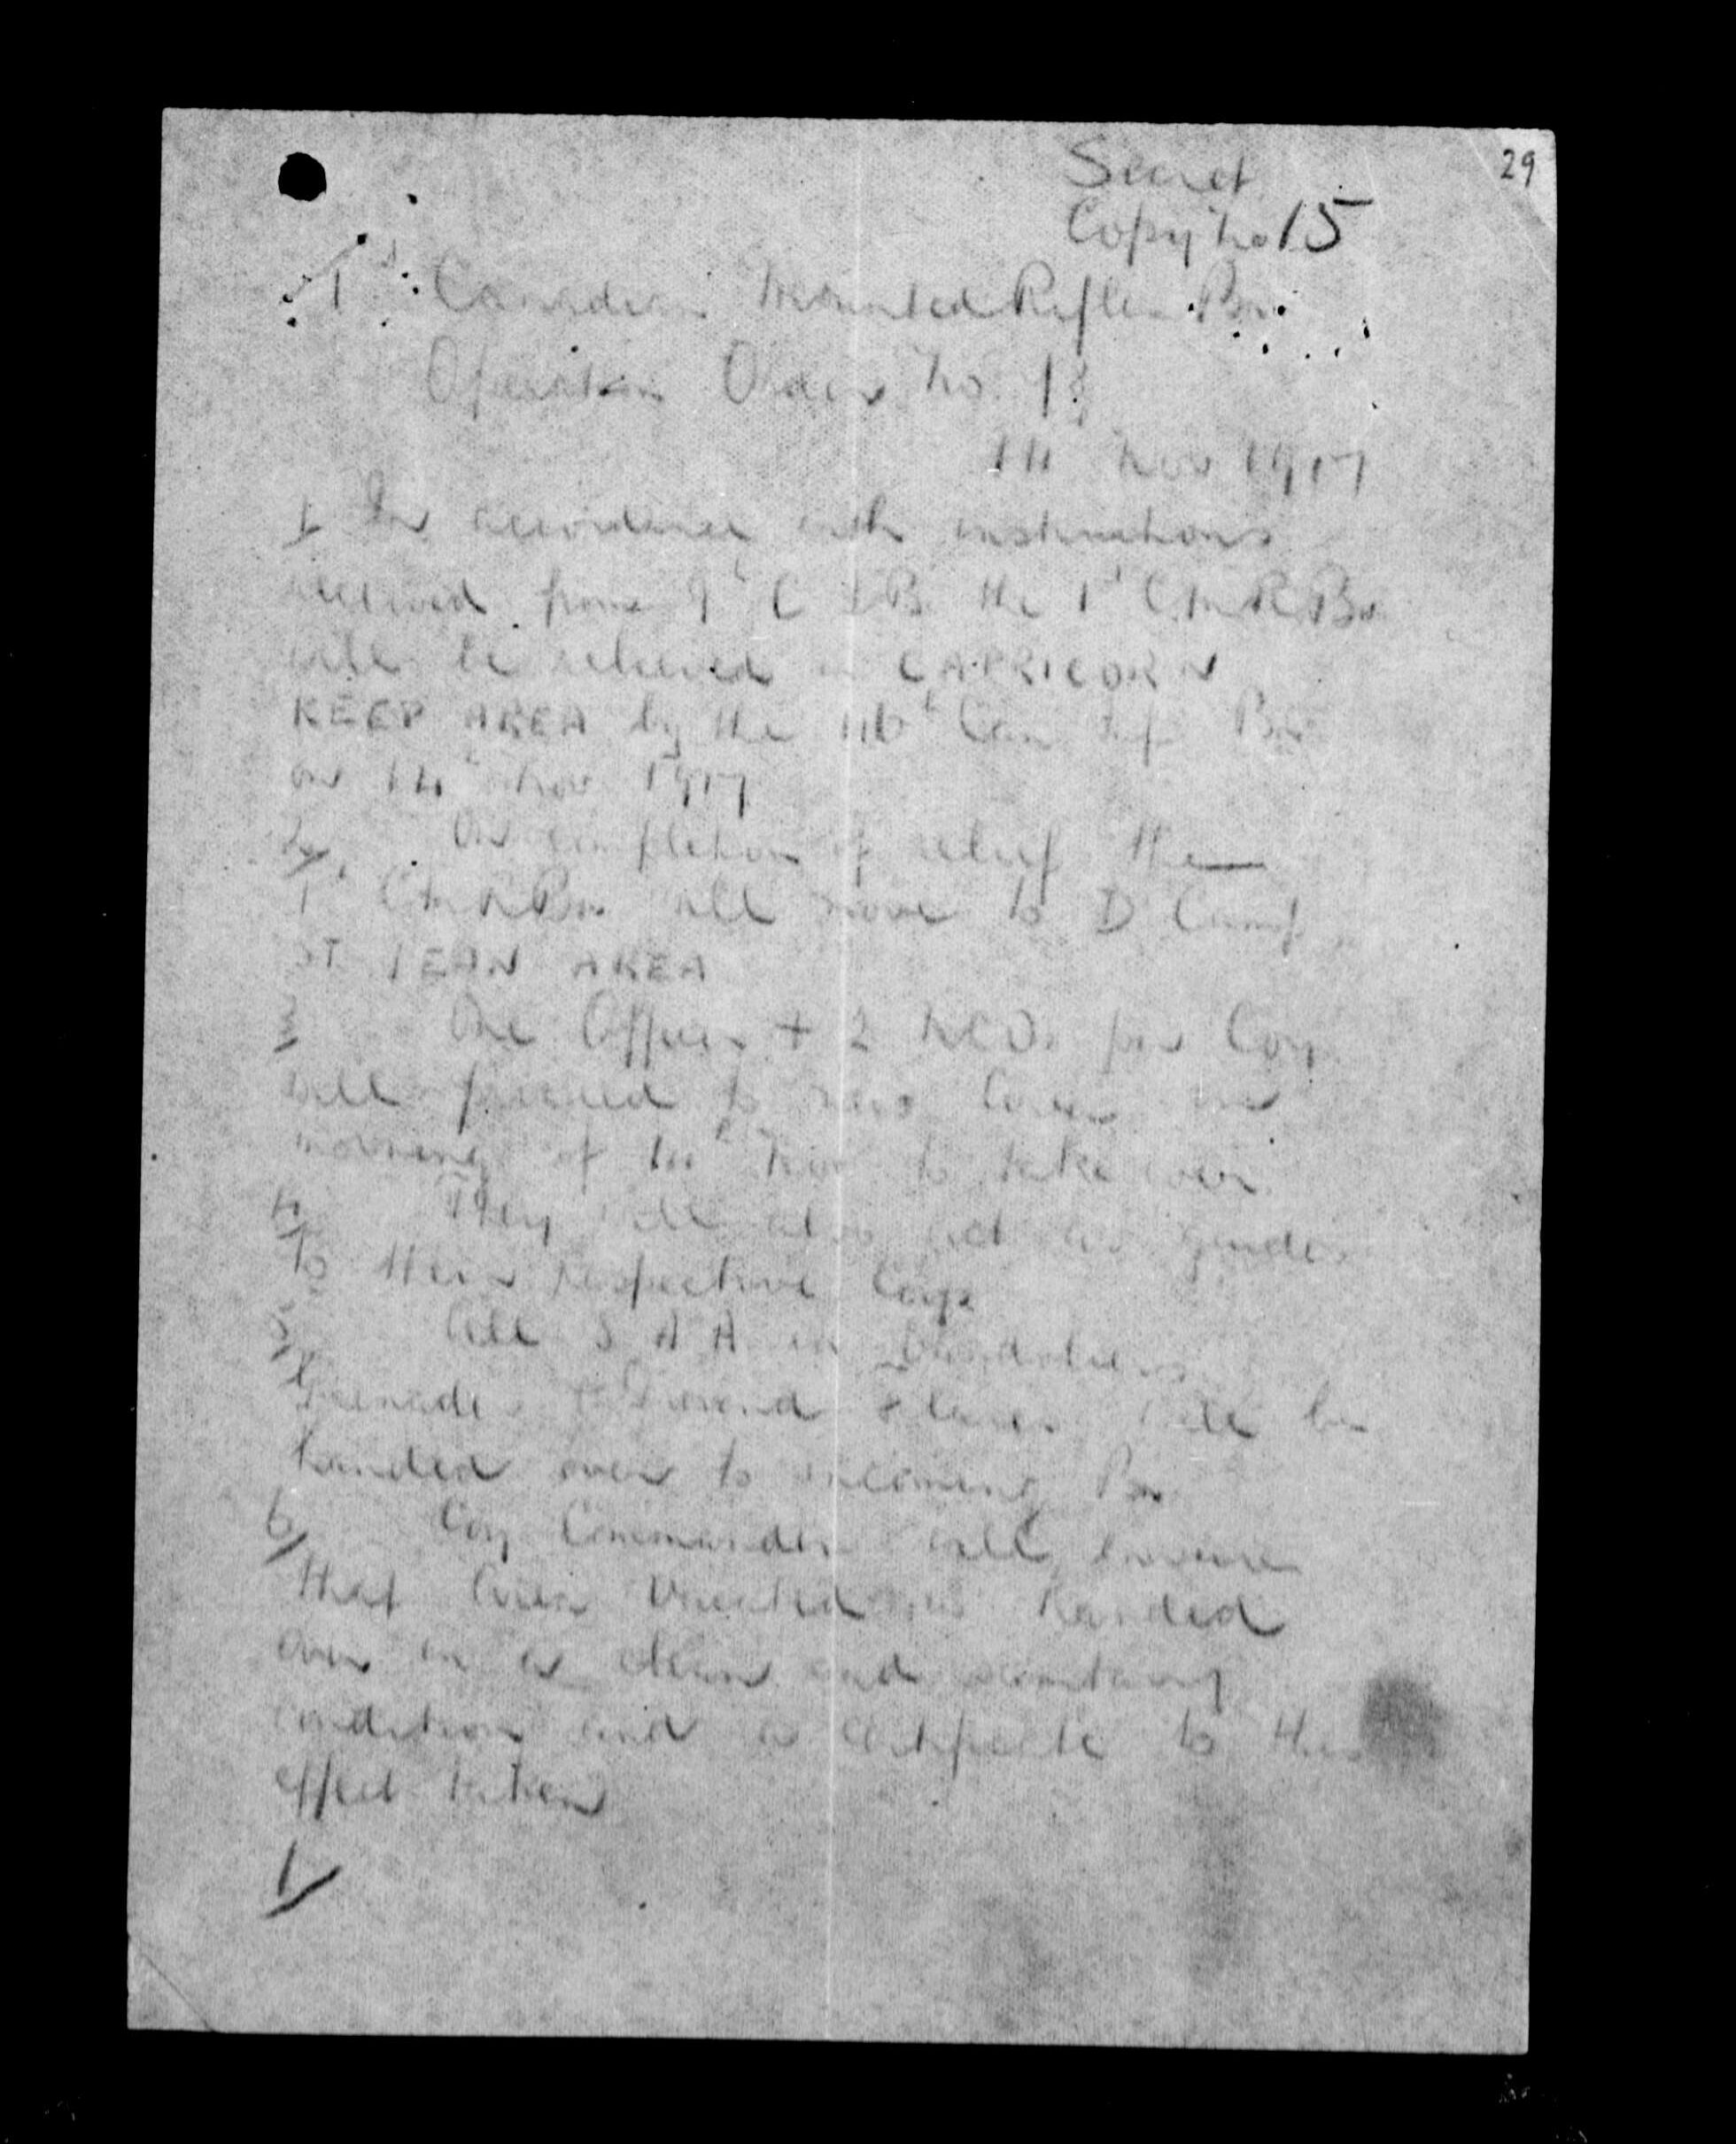 29
Secret
Copy No 15
1st Canadian Mounted Rifles Bn
Operation Order No.
14 Nov 1917
1/ In accordance with instructions
received from 9th C I B. the 1st C.M.R. Bn
will be relieved in CAPRICORN
KEEP AREA by the 116th Can Inf Bn
on 14th Nov 1917
2/ On completion of relief the
1st C.M.R. Bn. will move to D Camp
ST. JEAN AREA
3/ One Officer + 2 NCOs per Coy
will proceed to new area on
morning of 14th Nov to take over.
4/ They will also act as guides
to their respective Coys
5/ All S A A in bandoliers
Grenades & Ground Flares will be
handed over to incoming Bn
6/ Coy Commanders will ensure
that area vacated is handed
over in a clean and sanitary
condition and a certificate to this
effect taken
7/